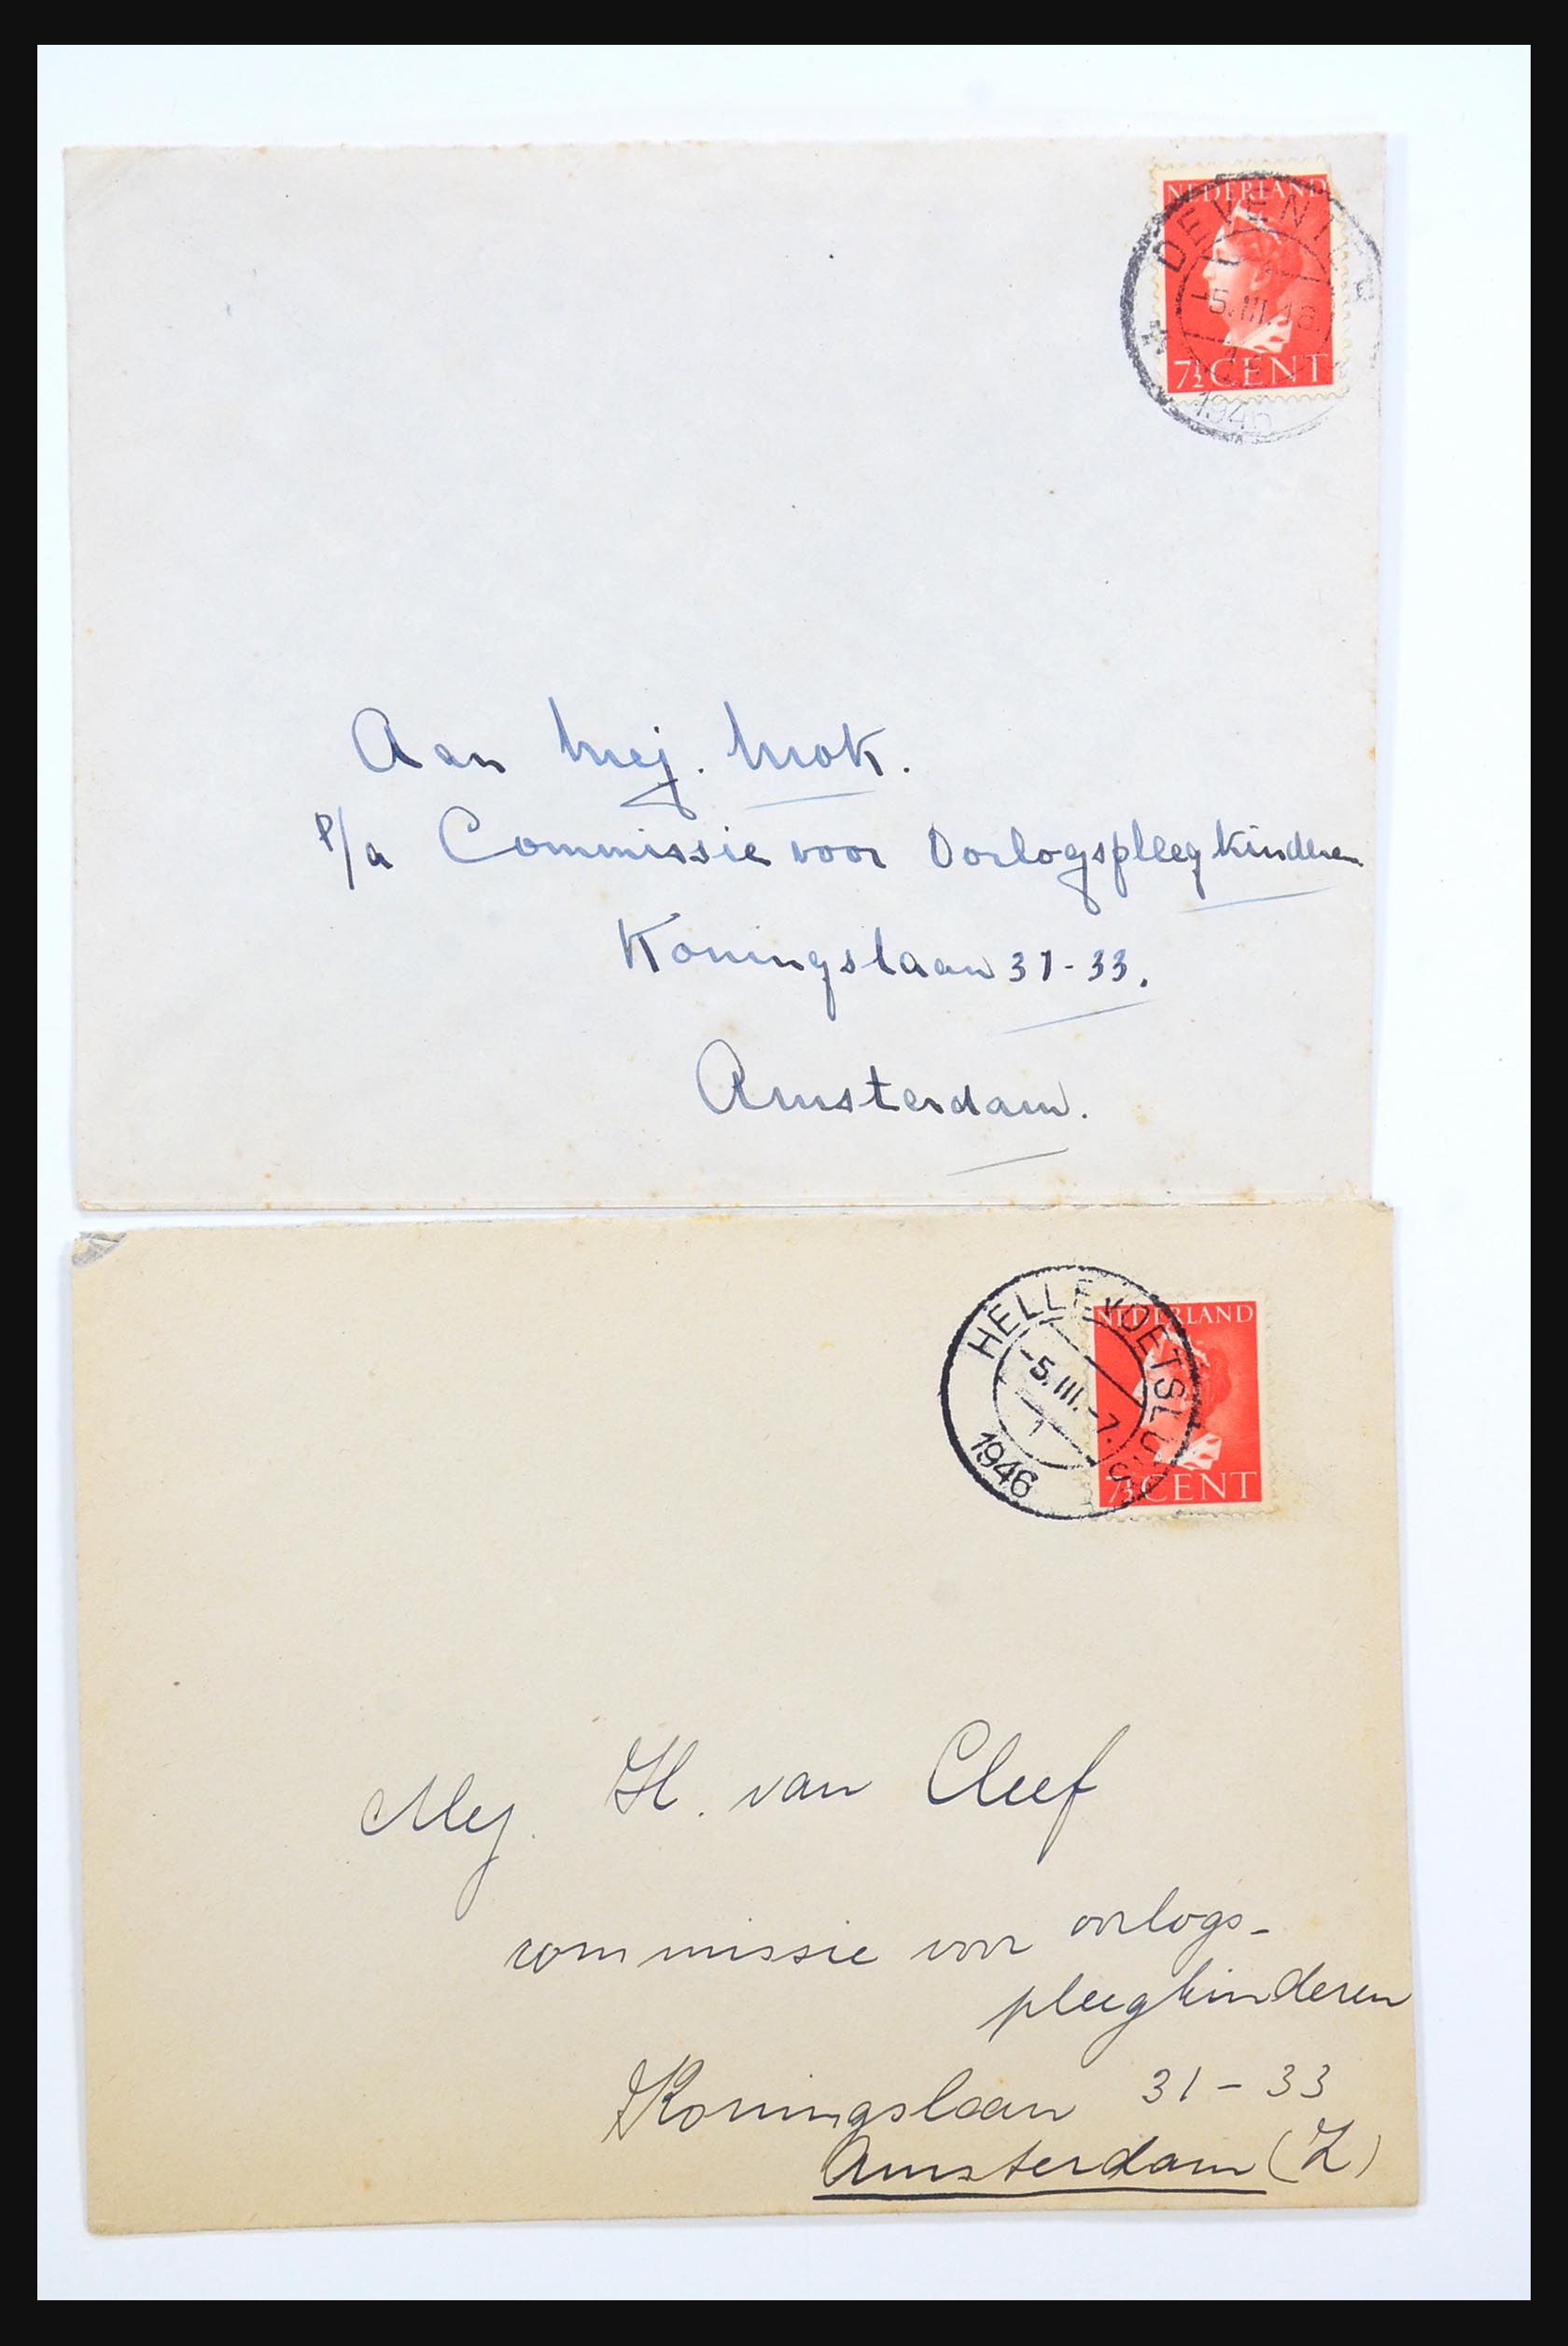 NEDERLAND
DEVENTER
-5.III.46.
1946
7½ CENT
Aan Mej. Mok.
p/a Commissie voor Oorlogspleegkinderen
Koningslaan 31-33.
Amsterdam.
HELLEVOETSLUIS
NEDERLAND
-5.III.-7.
1
1946
7½ CENT
Mej. H. van Cleef
commissie voor oorlogs-
pleegkinderen
Koningslaan 31-33
Amsterdam (Z)